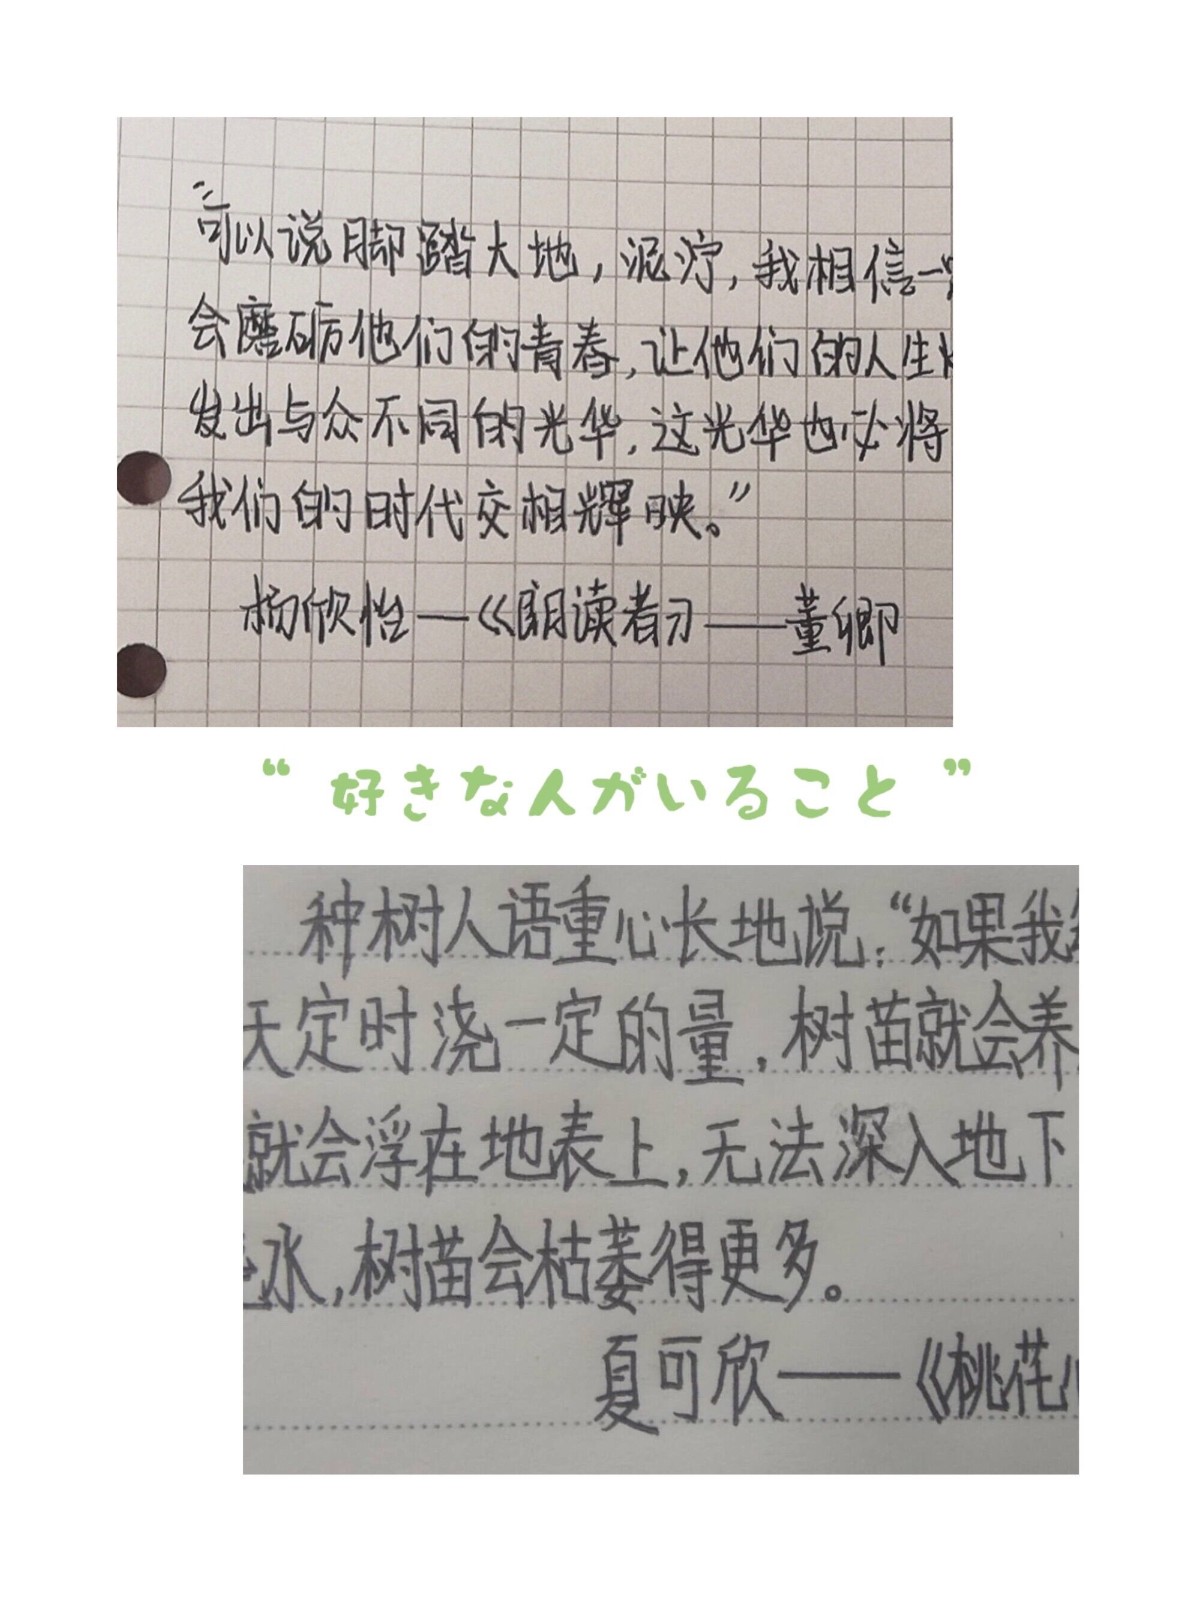 “可以说脚踏大地，泥泞，我相信一
会磨砺他们的青春，让他们的人生
发出与众不同的光华，这光华也必将
我们的时代交相辉映。”
杨欣怡——《朗读者》——董卿
“好きな人がいること”
种树人语重心长地说：“如果我
天定时浇一定的量，树苗就会养
就会浮在地表上，无法深入地下
水，树苗会枯萎得更多。
夏可欣——《桃花